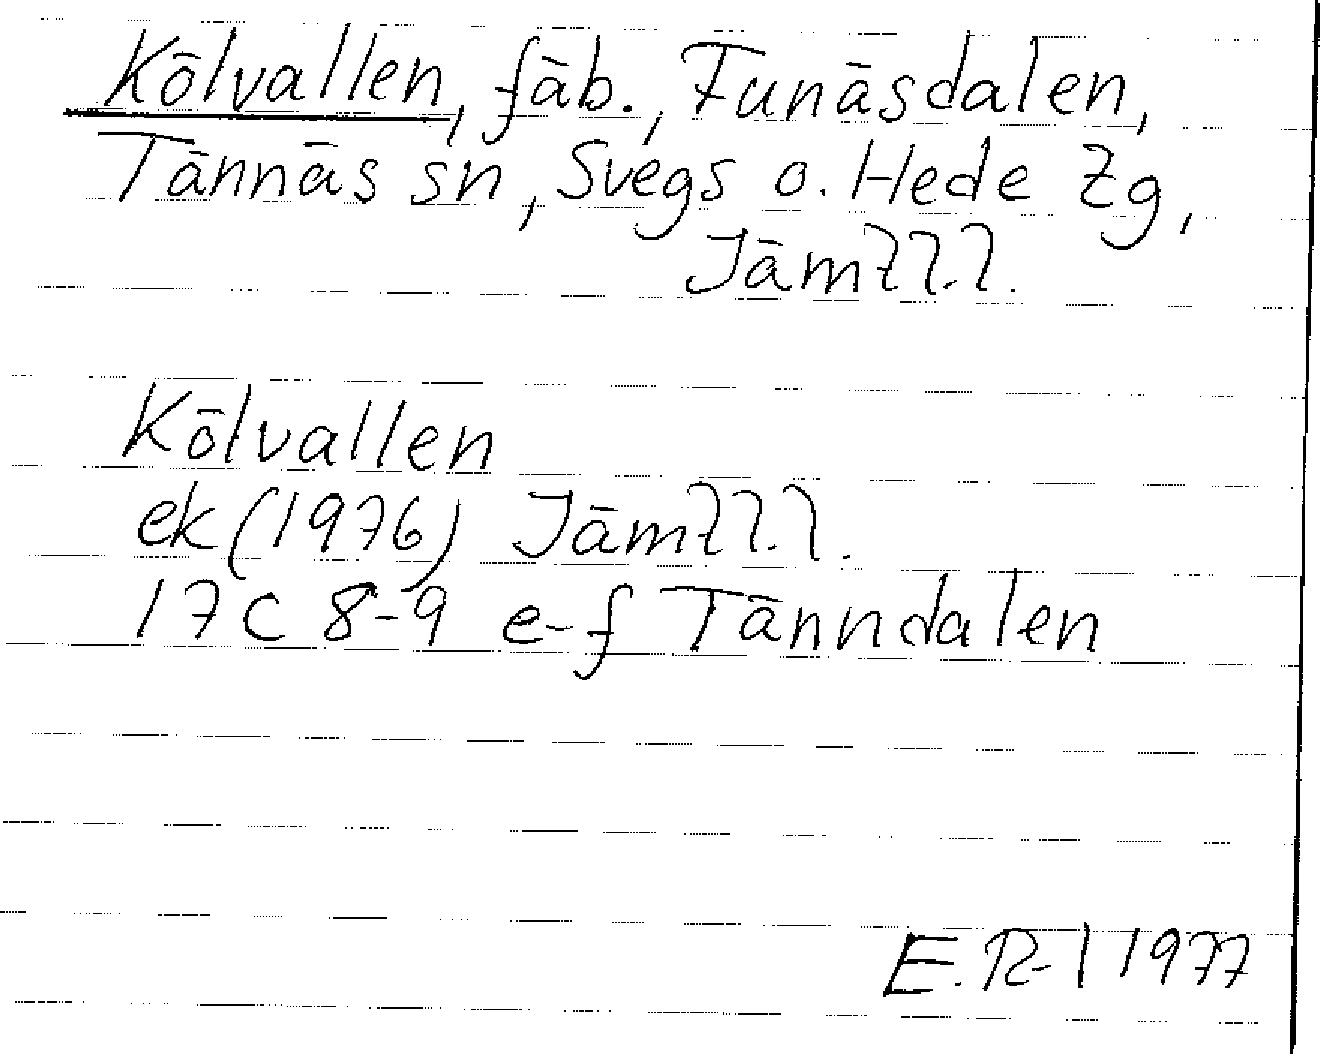 Kölvallen, fäb., Funäsdalen,
Tännäs sn, Svegs o. Hede tg,
Jämtl.l.
Kölvallen
ek (1976) Jämtl.l.
17C 8-9 e-f Tänndalen
E.R-l 1977